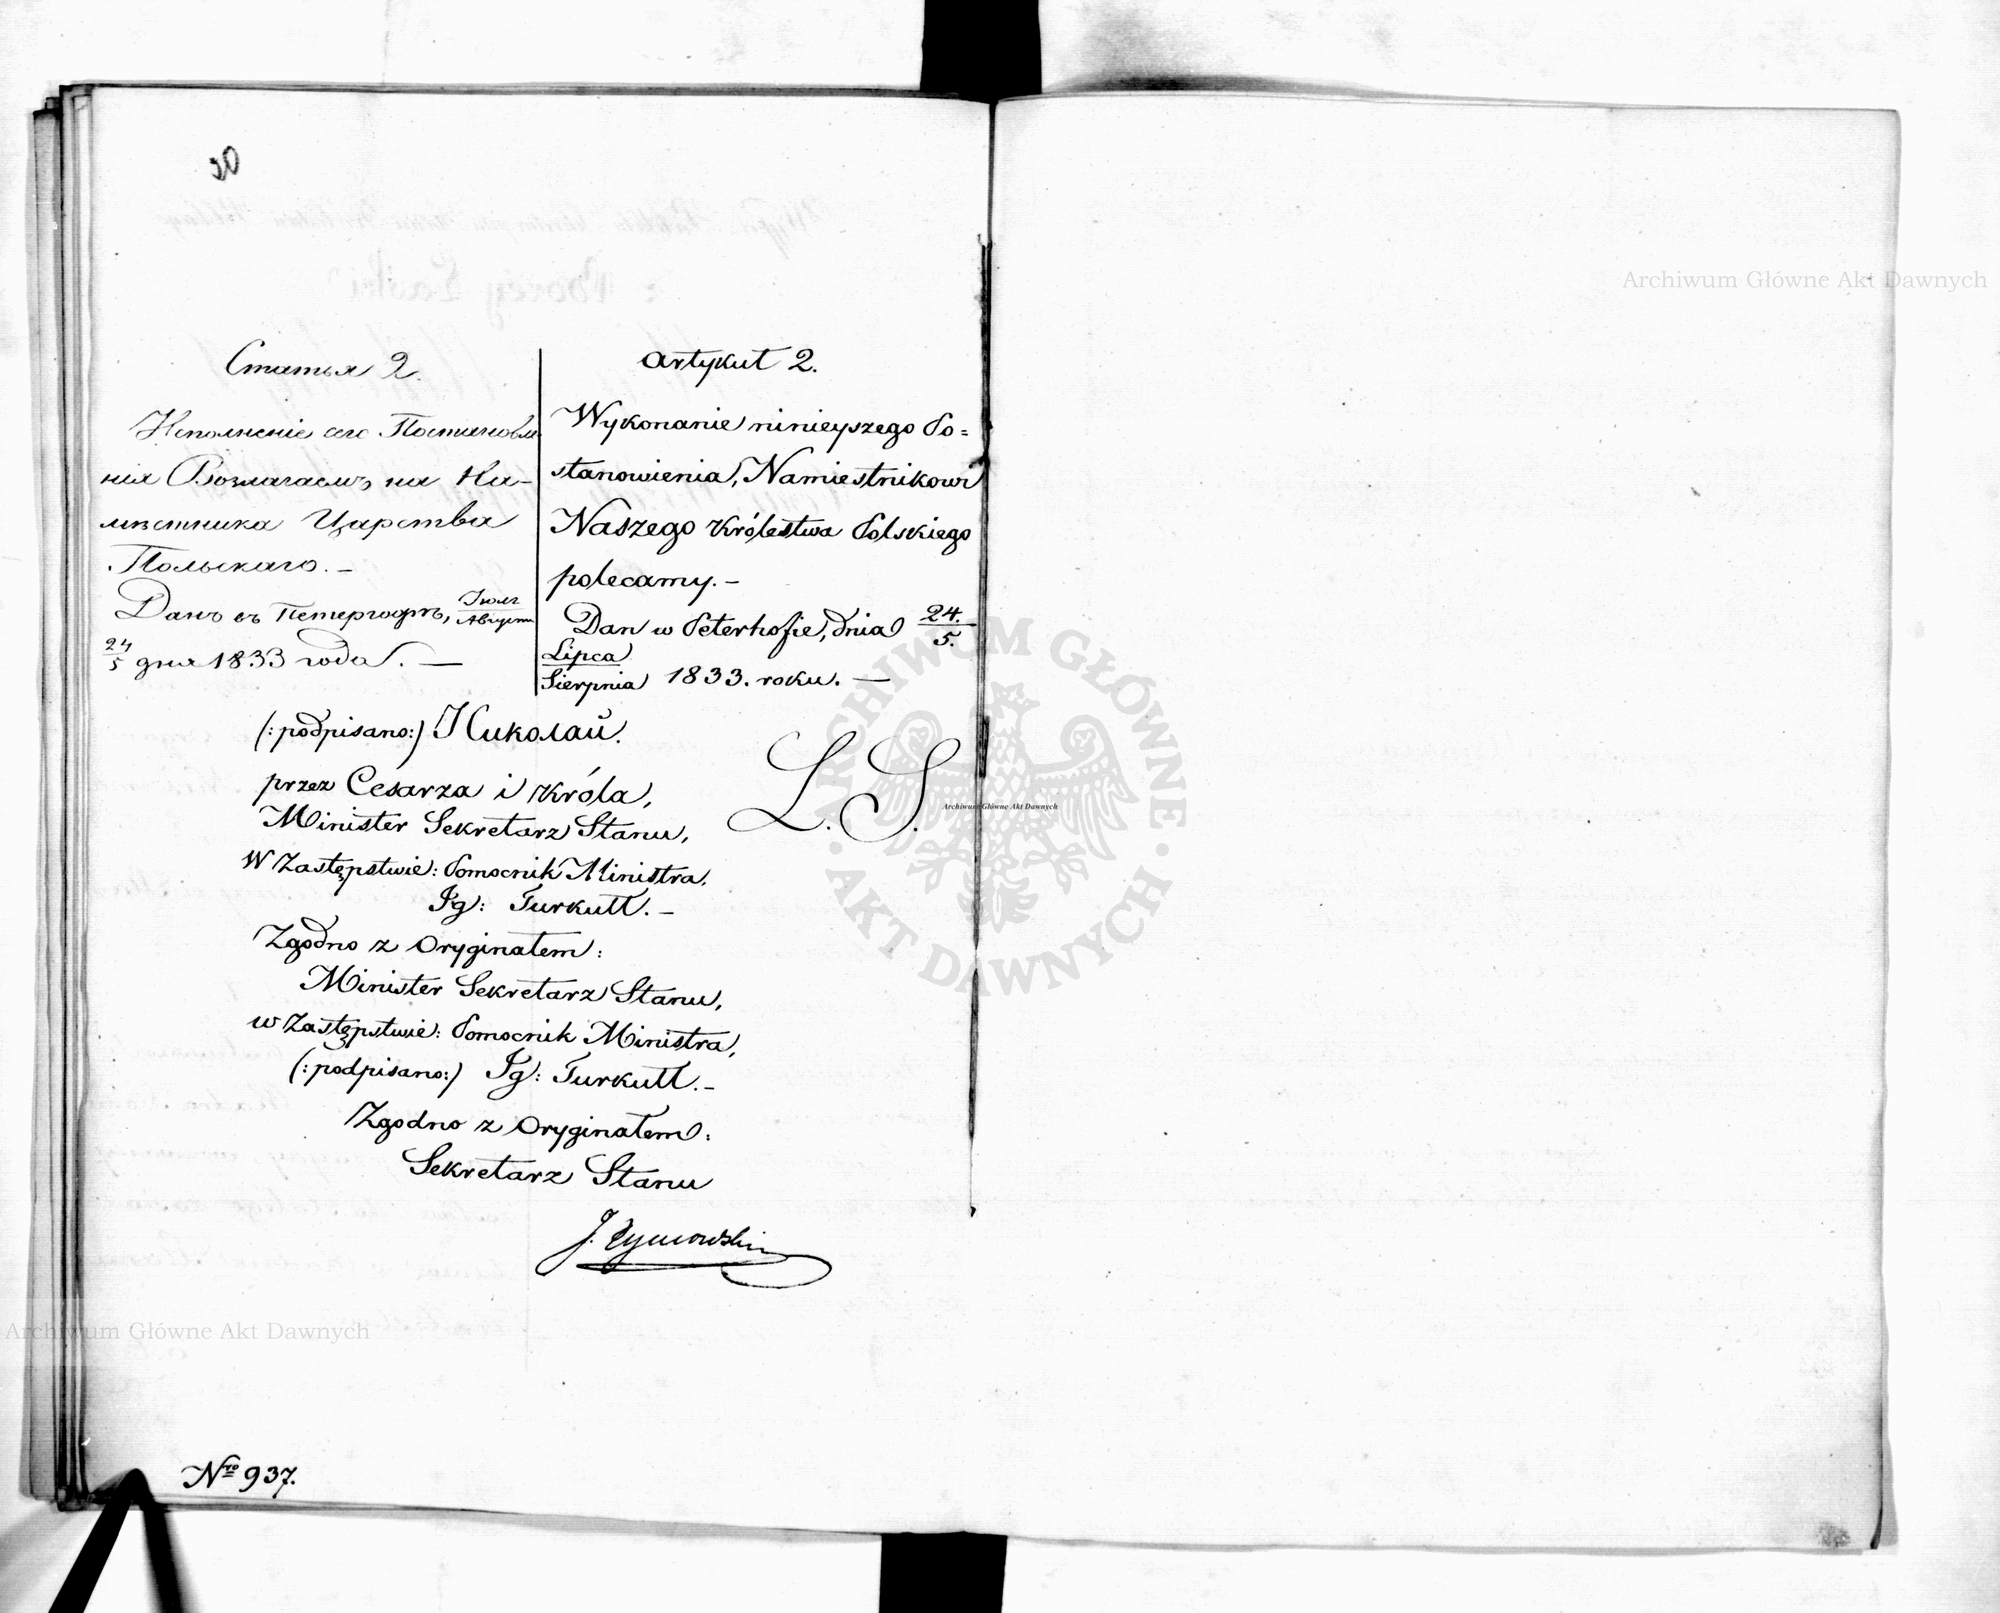 Статья 2.
Исполненіе сего Постановле
нія Возлагаемъ на На-
мѣстника Царства
Польскаго. —
Данъ въ Петергофѣ, Іюля/Августа
24/5 дня 1833 года. —
Artykuł 2.
Wykonanie ninieyszego Po=
stanowienia, Namiestnikowi
Naszego Królestwa Polskiego
polecamy. —
Dan w Peterhofie, dnia 24./5.
Lipca/Sierpnia 1833. roku. —
(: podpisano:) Николай.
przez Cesarza i Króla,
Minister Sekretarz Stanu,
W Zastępstwie: Pomocnik Ministra.
Ig: Turkułł. —
L. S.
Zgodno z Oryginałem:
Minister Sekretarz Stanu,
w Zastępstwie: Pomocnik Ministra,
(: podpisano:) Ig: Turkułł. —
Zgodno z Oryginałem:
Sekretarz Stanu
J. Tymowski
Nro 937.
Archiwum Główne Akt Dawnych
ARCHIWUM GŁÓWNE
AKT DAWNYCH
Archiwum Główne Akt Dawnych
Archiwum Główne Akt Dawnych